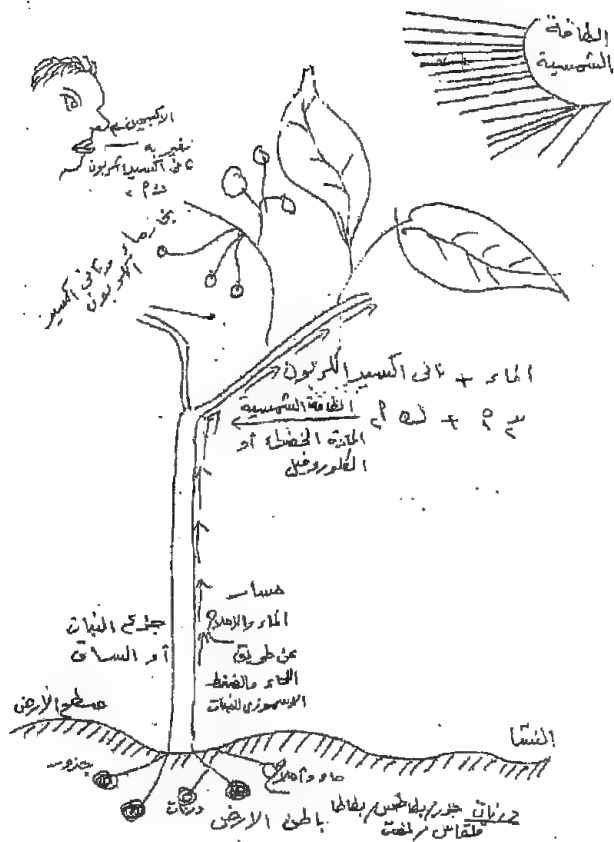 الطاقة
الشمسية
الاكسجين
ثاني أكسيد الكربون
بخار ماء وثاني اكسيد
الكربون
الماء + ثاني اكسيد الكربون
الطاقة الشمسية
المادة الخضراء أو
الكلوروفيل
مسار
الماء والاملاح
عن طريق
اللحاء والضغط
الاسموزي للنبات
جذع النبات
أو الساق
سطح الأرض
النشا
جذور
ماء وأملاح
درنات
باطن الارض
درنات جذور بطاطس / بطاطا
قلقاس / لفت